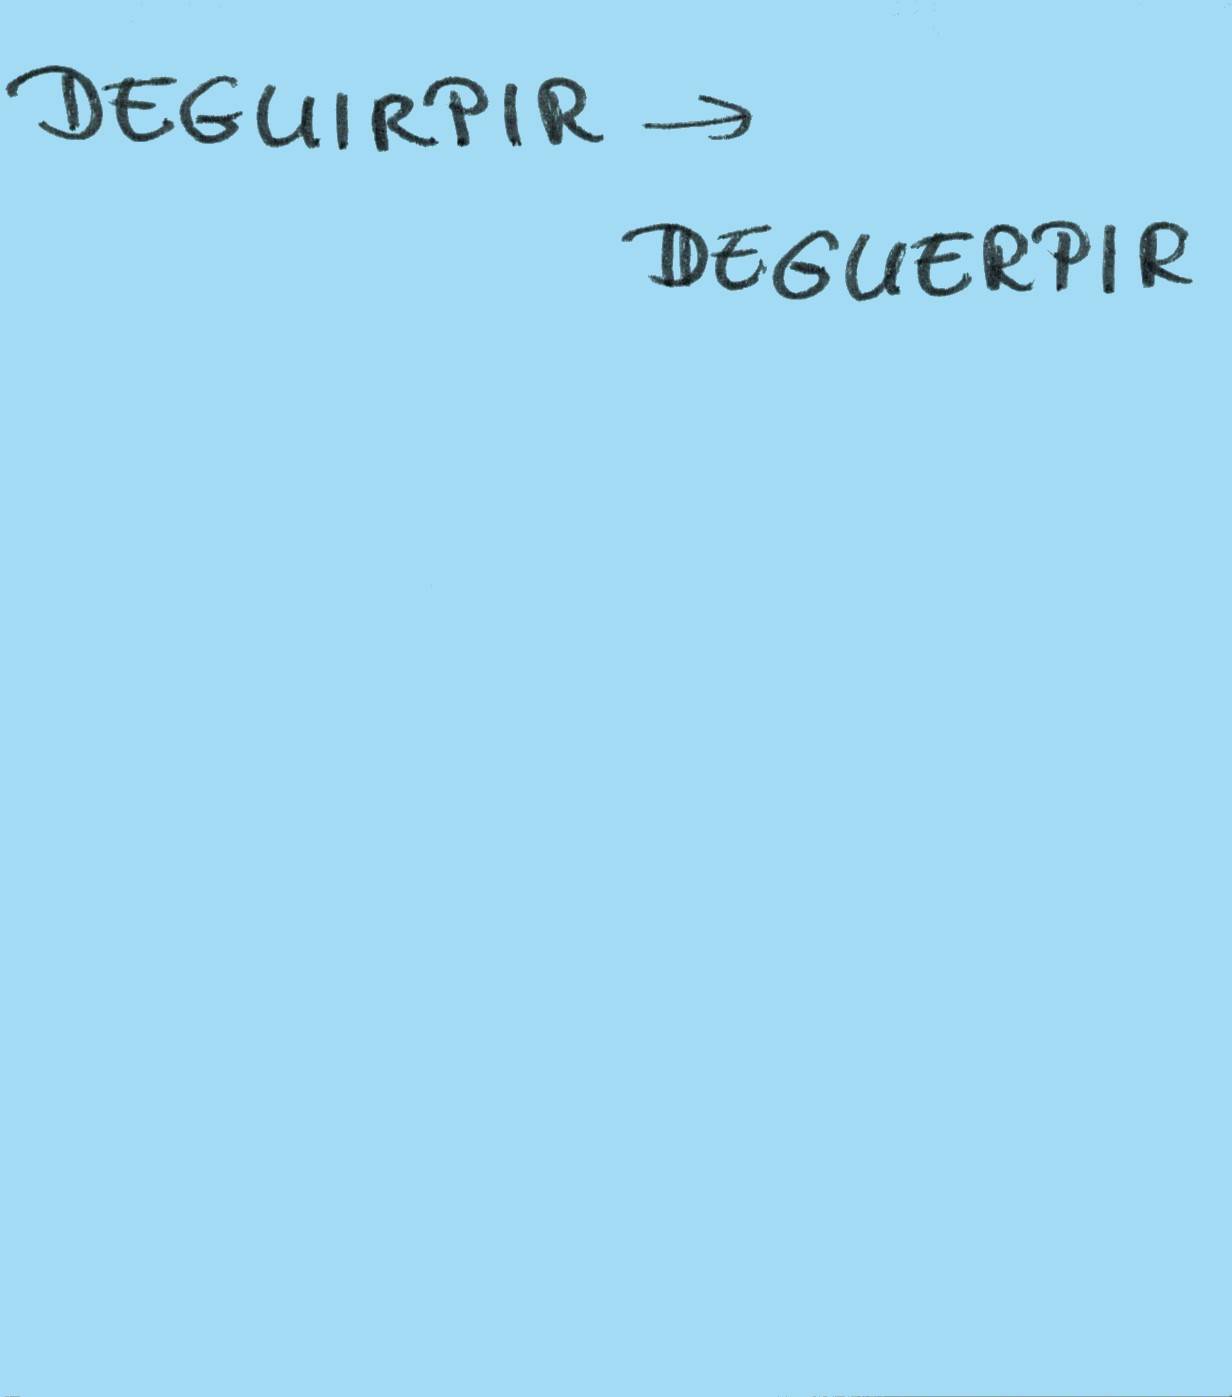 DEGUIRPIR →
DEGUERPIR